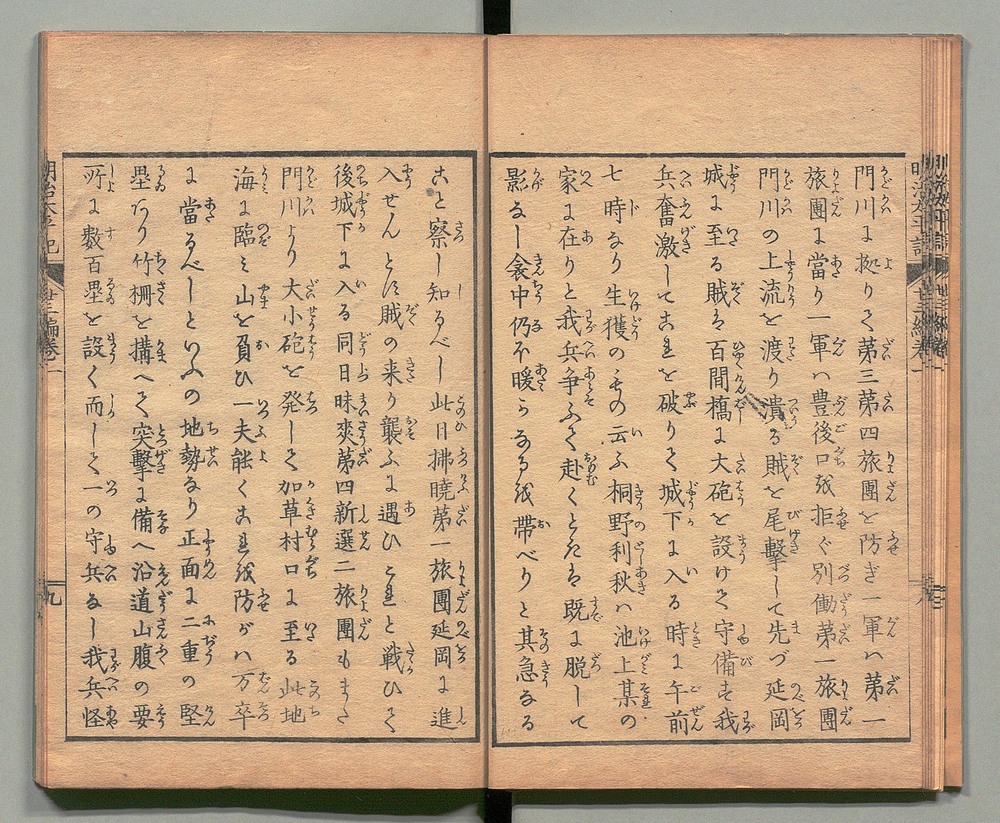 門川に拠りて第三第四旅團を防ぎ一軍ハ第一
旅團に當り一軍ハ豊後口を拒ぐ別働第一旅團
門川の上流を渡り潰る賊を尾撃して先づ延岡
城に至る賊は百間橋に大砲を設けて守備す我
兵奮激してこれを破りて城下に入る時に午前
七時なり生獲のもの云ふ桐野利秋ハ池上某の
家に在りと我兵争ふて赴くときは既に脱して
影なし衾中仍不暖かなるを帯べりと其急なる
こと察し知るべし此日拂曉第一旅團延岡に進
入せんとす賊の来り襲ふに遇ひこれと戦ひて
後城下に入る同日昧爽第四新選二旅團もまた
門川より大小砲を発して加草村口に至る此地
海に臨ミ山を負ひ一夫能くこれを防がハ万卒
に當るべしといふの地勢なり正面に二重の堅
塁あり竹柵を搆へて突撃に備へ沿道山腹の要
所に数百塁を設く而して一の守兵なし我兵怪
明治太平記
廿三編巻一
九